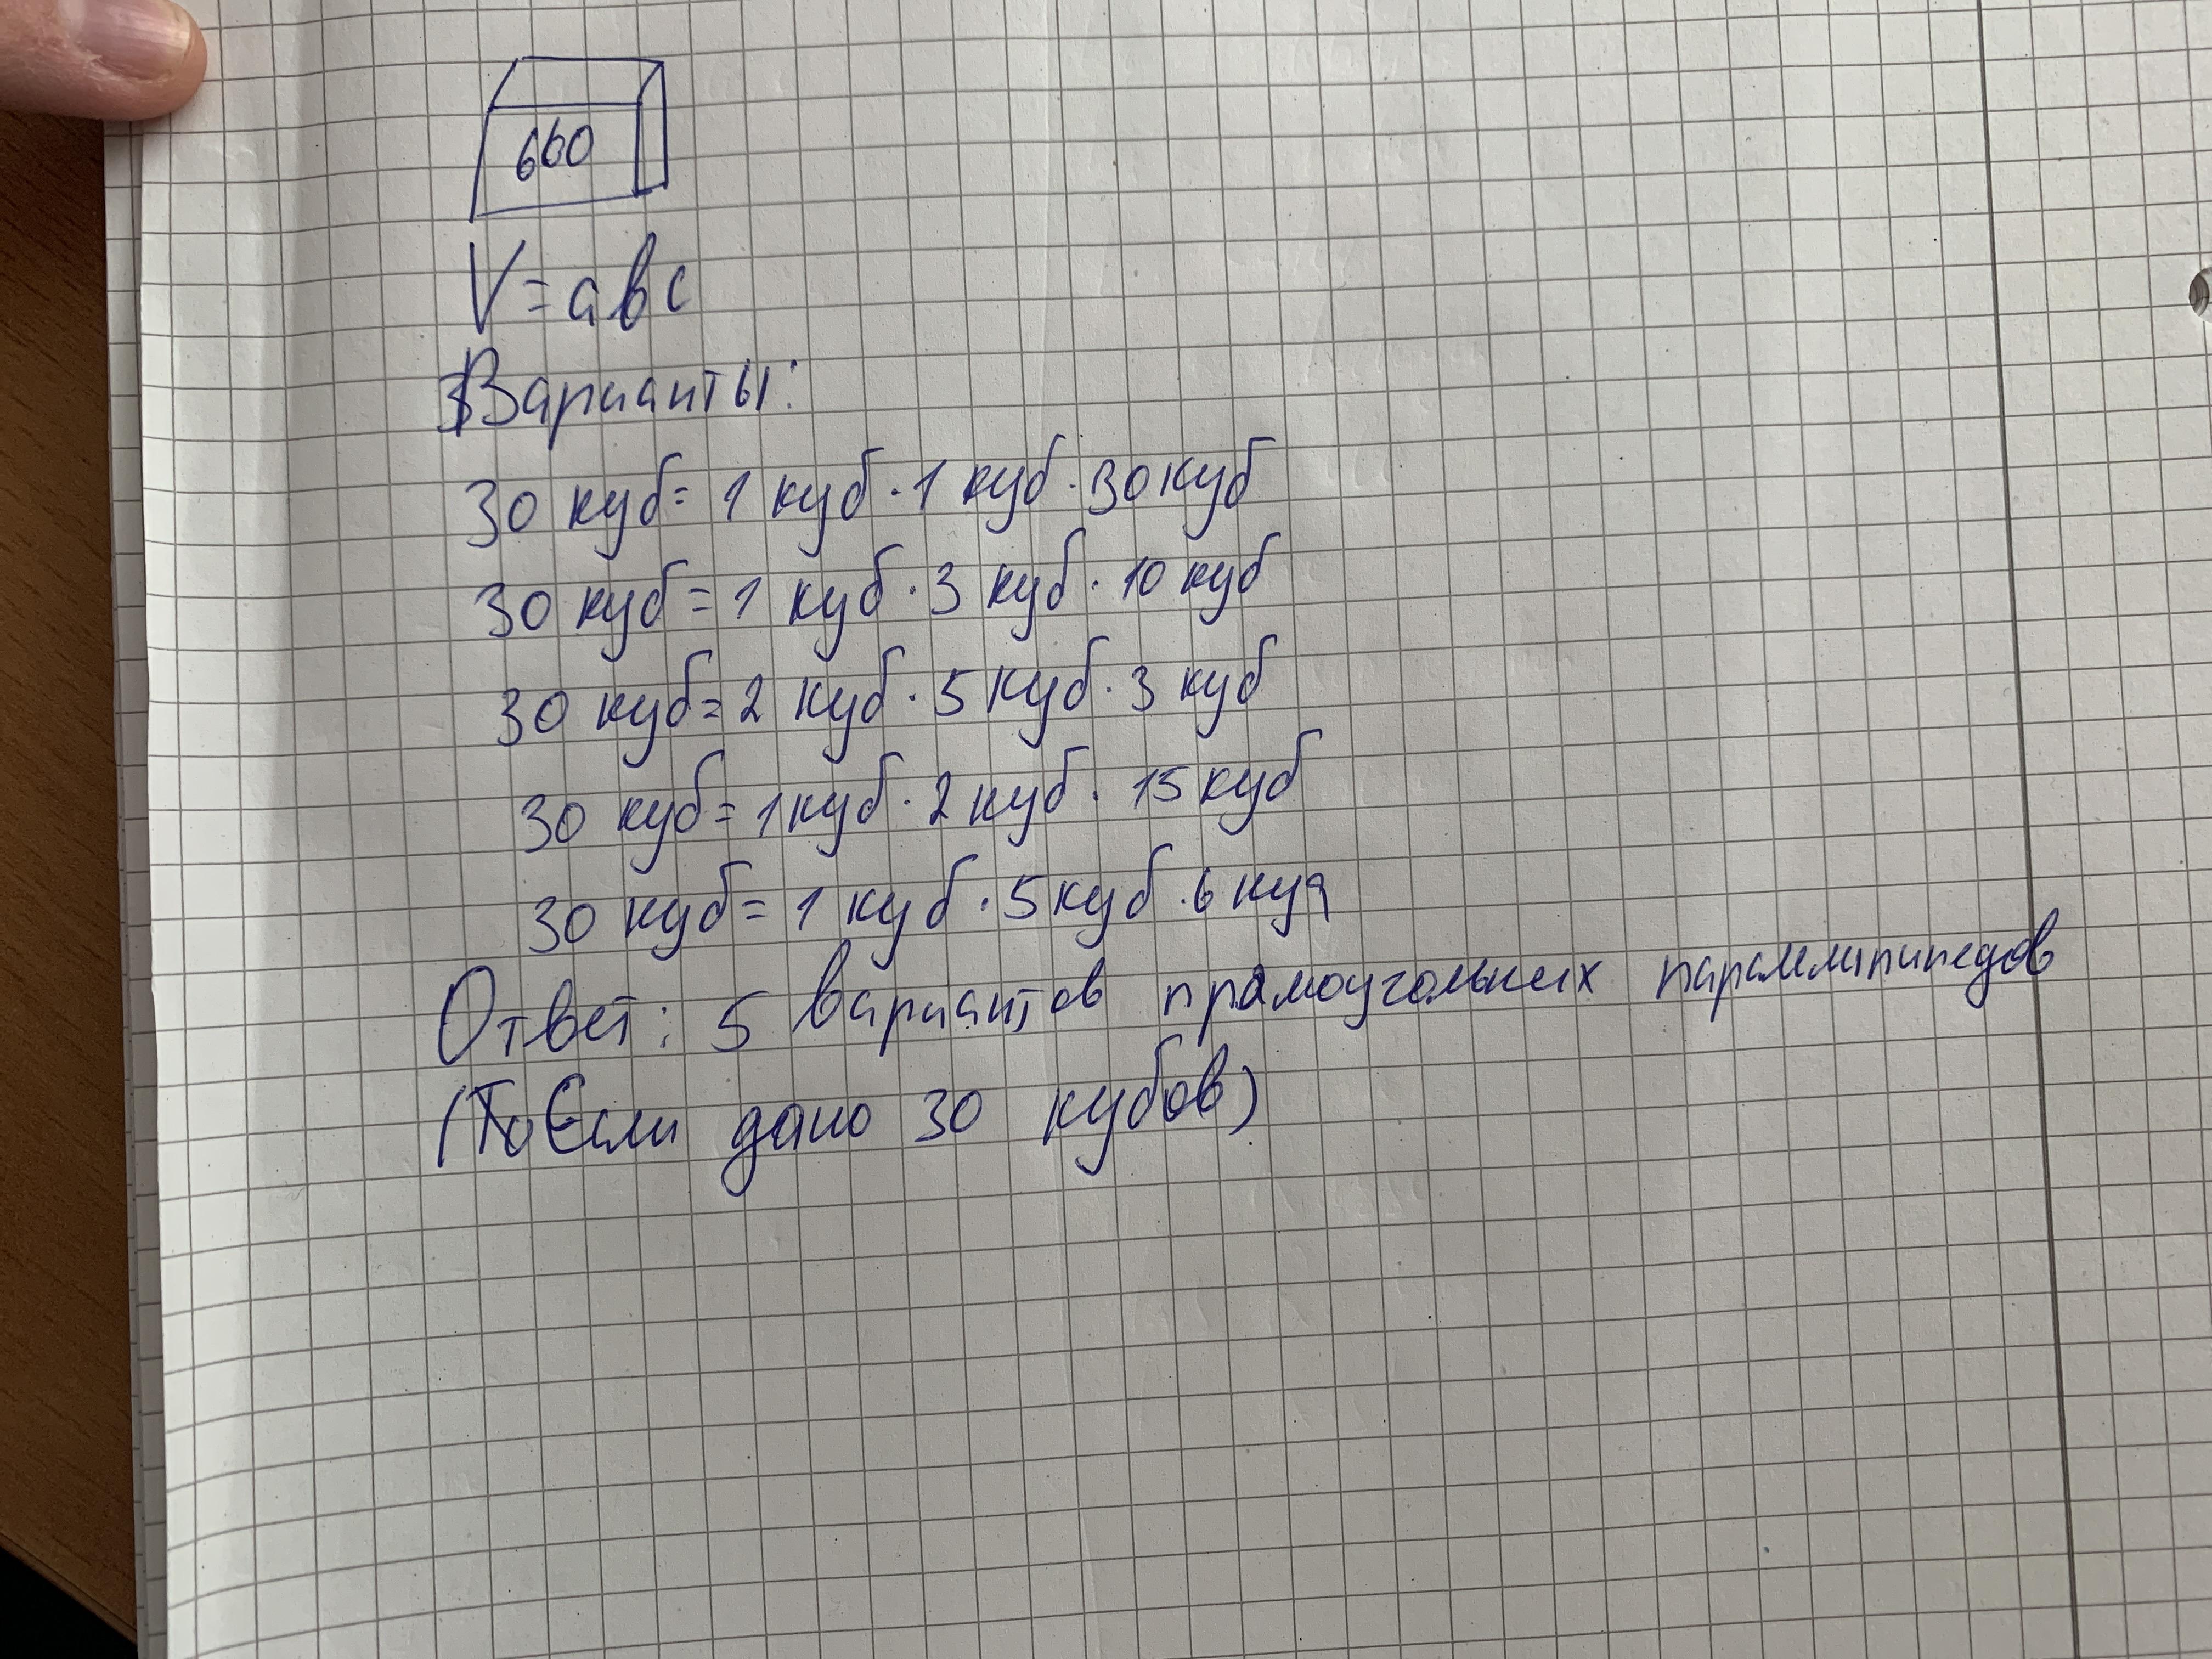 660
V = abc
Варианты:
30 куб = 1 куб · 1 куб · 30 куб
30 куб = 1 куб · 3 куб · 10 куб
30 куб = 2 куб · 5 куб · 3 куб
30 куб = 1 куб · 2 куб · 15 куб
30 куб = 1 куб · 5 куб · 6 куд
Ответ: 5 вариантов прямоугольных параллепипедов
(То Если дано 30 кубов)